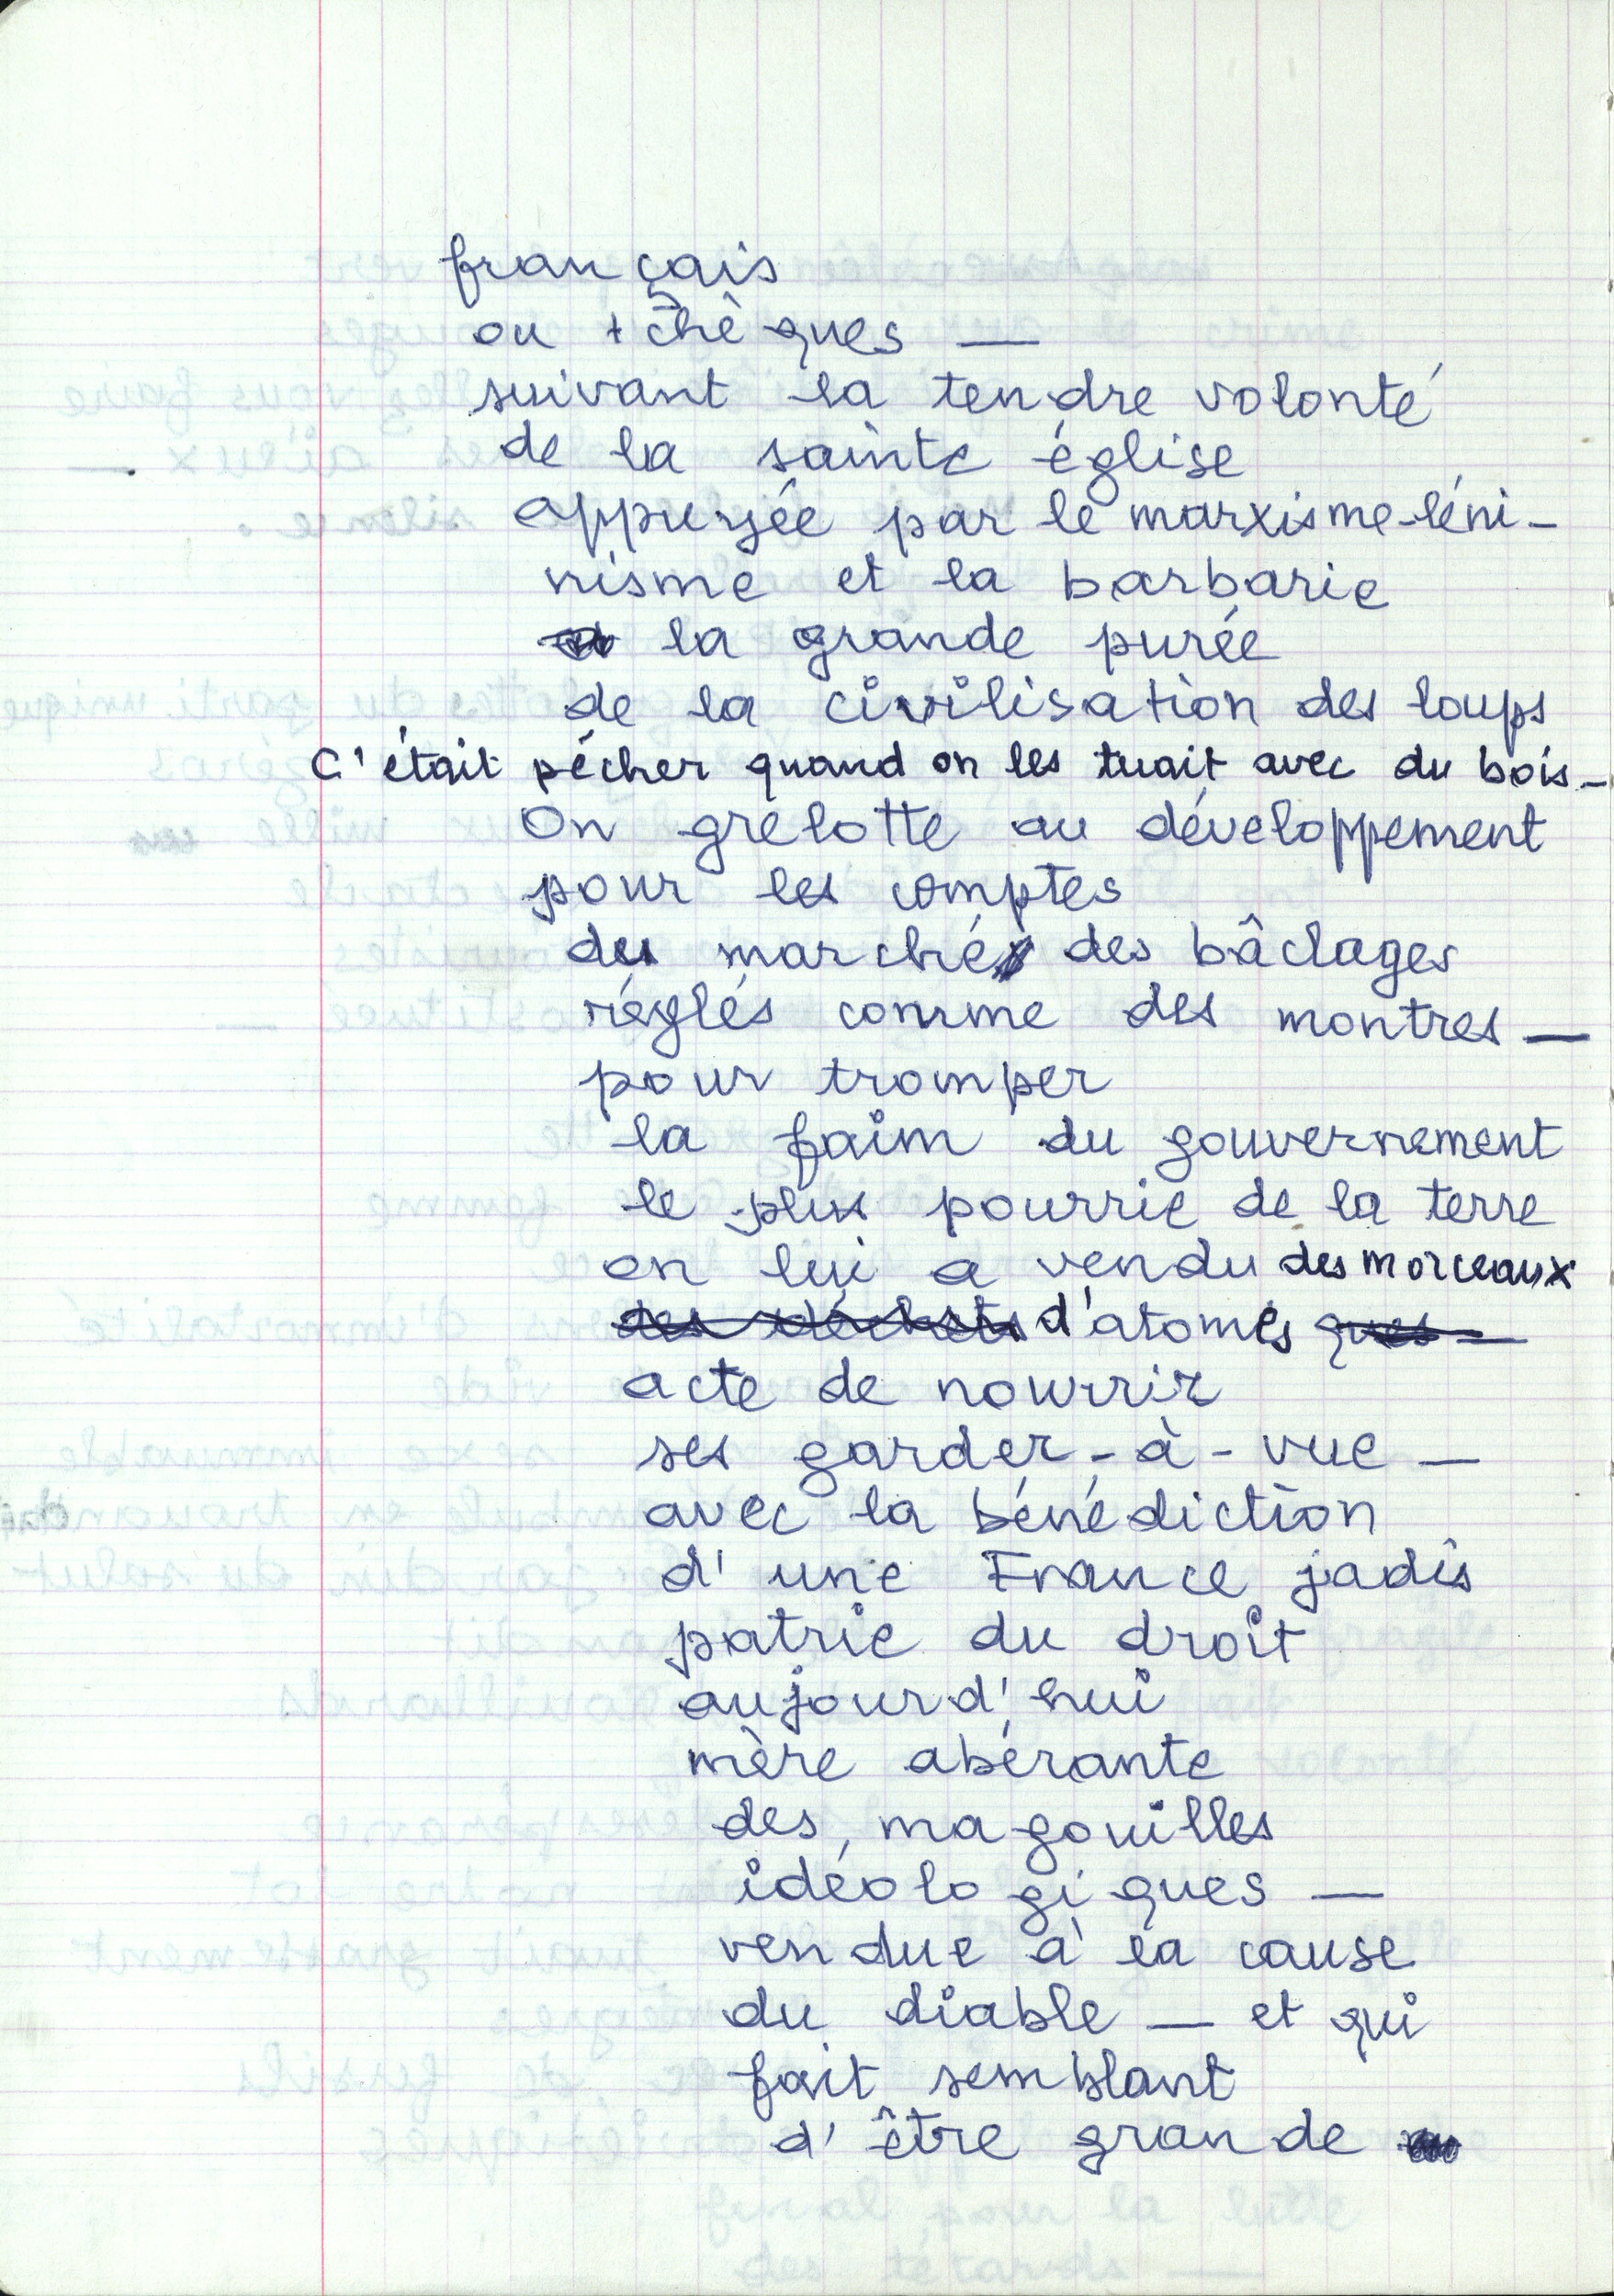 français
ou tchèques —
suivant la tendre volonté
de la sainte église
appuyée par le marxisme-léni-
nisme et la barbarie
la grande purée
de la civilisation des loups
C'était pécher quand on les tuait avec du bois —
On grelotte au développement
pour les comptes
du marché des bâclages
réglés comme des montres —
pour tromper
la faim du gouvernement
le plus pourrie de la terre
on lui a vendu des morceaux
des déchets d'atomes ques —
acte de nourrir
ses garder-à-vue —
avec la bénédiction
d'une France jadis
patrie du droit
aujourd'hui
mère abérante
des magouilles
idéologiques —
vendue à la cause
du diable — et qui
fait semblant
d'être grande